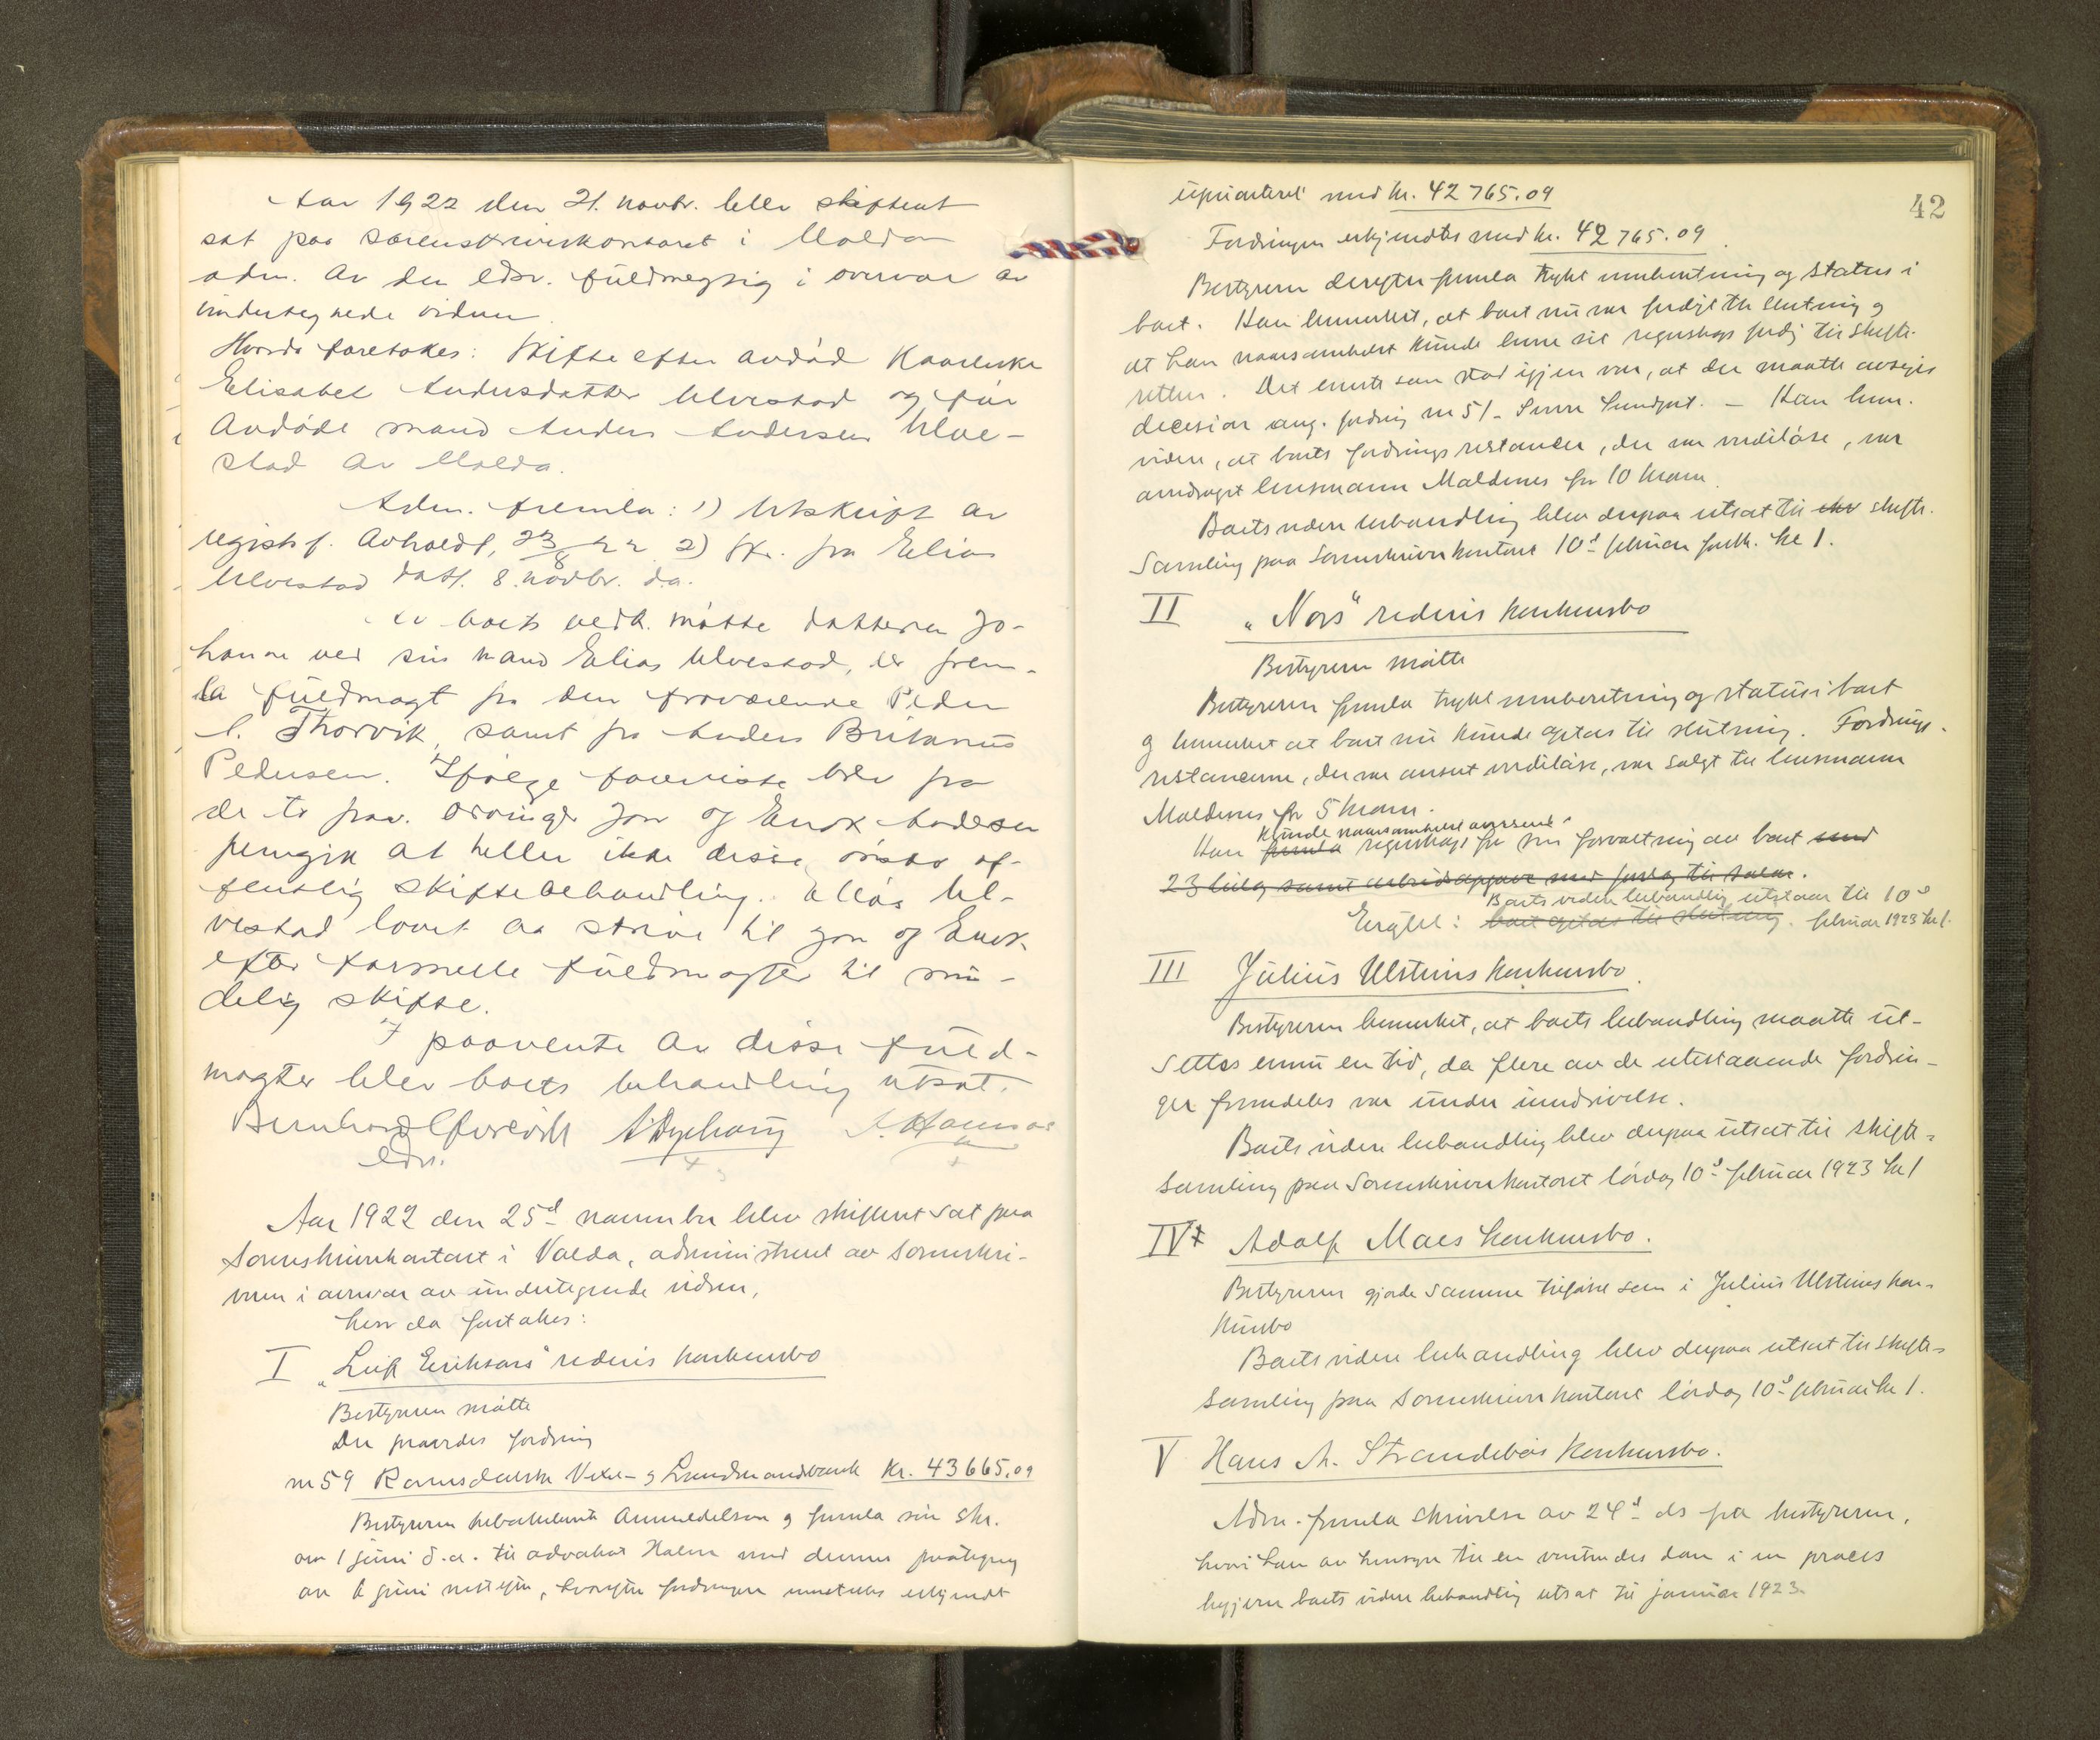 Aar 1922 den 21. novbr. blev skifteret
sat paa sorenskriverkontoret i Volda
adm. av den edsv. fuldmegtig i overvær av
undertegnede vidner.
Hvorda foretokes: Skifte efter avdød Kaarlinke
Elisabet Andersdatter Ulvestad og før
avdøde mand Anders Andersen Ulve-
stad av Volda.
Adm. fremla: 1) Utskrift av
registr.f. avholdt, 23/8 22. 2) Skr. fra Elias
Ulvestad dat. 8. novbr. d.a.
Av boets vedk. møtte datteren Jo-
hanne ved sin mand Elias Ulvestad, der frem-
la fuldmagt fra den fraværende Peder
P. Thorvik, samt fra Anders Britanus
Pedersen. Ifølge foreviste brev fra
de to frav. arvinger Jon og Enok Andersen
fremgik at heller ikke disse ønsker of-
fentlig skiftebehandling. Elias Ul-
vestad lovet aa skrive til Jon og Enok
efter formelle fuldmagter til min-
delig skifte.
I paavente av disse fuld-
magter blev boets behandling utsat.
Bernhard
edsv.
Aar 1922 den 25d november blev skifteret sat paa
Sorenskriverkontoret i Volda, administreret av sorenskri-
veren i overvær av undertegnede vidner,
hvor da foretokes:
I „Leif Eriksons" rederis konkursbo
Bestyreren møtte
Der prøvedes fordring
nr 59 Romsdalske Vexel- og Landmandsbank Kr. 43665.09
Bestyreren tilbakeleverte anmeldelsen og fremla sin skr.
av 1 juni d.a. til advokat Holm med dennes paategning
av 6 juni næstefter, hvorefter fordringen innstilles erkjendt
uprioriteret med kr. 42 765.09
42
Fordringen erkjendtes med kr. 42 765.09.
Bestyreren derefter fremla trykt innberetning og status i
boet. Han bemerket, at boet nu var færdigt til slutning og
at han naarsomhelst kunde levere sit regnskap færdig til skifte-
retten. Det eneste som stod igjen var, at der maatte avsiges
decision ang. fordring nr 51 - Lundqvist. - Han bem.
videre, at boets fordringsrestancer, der var verdiløse, var
overdraget lensmann Maldenes for 10 kroner.
Boets videre behandling blev derpaa utsat til skifte-
samling paa Sorenskriverkontoret 10d februar førstk. kl 1.
II „Nors" rederis konkursbo
Bestyreren møtte
Bestyreren fremla trykt innberetning og status i boet
og bemerket at boet nu kunde optas til slutning. Fordrings-
restancerne, der var ansett verdiløse, var solgt til lensmann
Maldenes for 5 kroner.
kunde naarsomhelst avslutte
Han fremla regnskap for sin forvaltning av boet med
23 bilag samt arbeidsopgave med forslag til salær.
Boets videre behandling utstaar til 10d
Ergjel: boet optas til slutning. februar 1923 kl 1.
III Julius Ulsteins konkursbo.
Bestyreren bemerket, at boets behandling maatte ut-
settes ennu en tid, da flere av de utestaaende fordrin-
ger fremdeles var under inndrivelse.
Boets videre behandling blev derpaa utsat til skifte-
samling paa Sorenskriverkontoret lørdag 10d februar 1923 kl 1
IV Adolf Moes konkursbo.
Bestyreren gjorde samme tilførsel som i Julius Ulsteins kon-
kursbo
Boets videre behandling blev derpaa utsat til skifte-
samling paa Sorenskriverkontoret lørdag 10d februar kl 1.
V Hans A. Strandebøs konkursbo.
Adm. fremla skrivelse av 24d ds fra bestyreren,
hvori han av hensyn til en ventendes dom i en proces
begjerer boets videre behandling utsat til januar 1923.